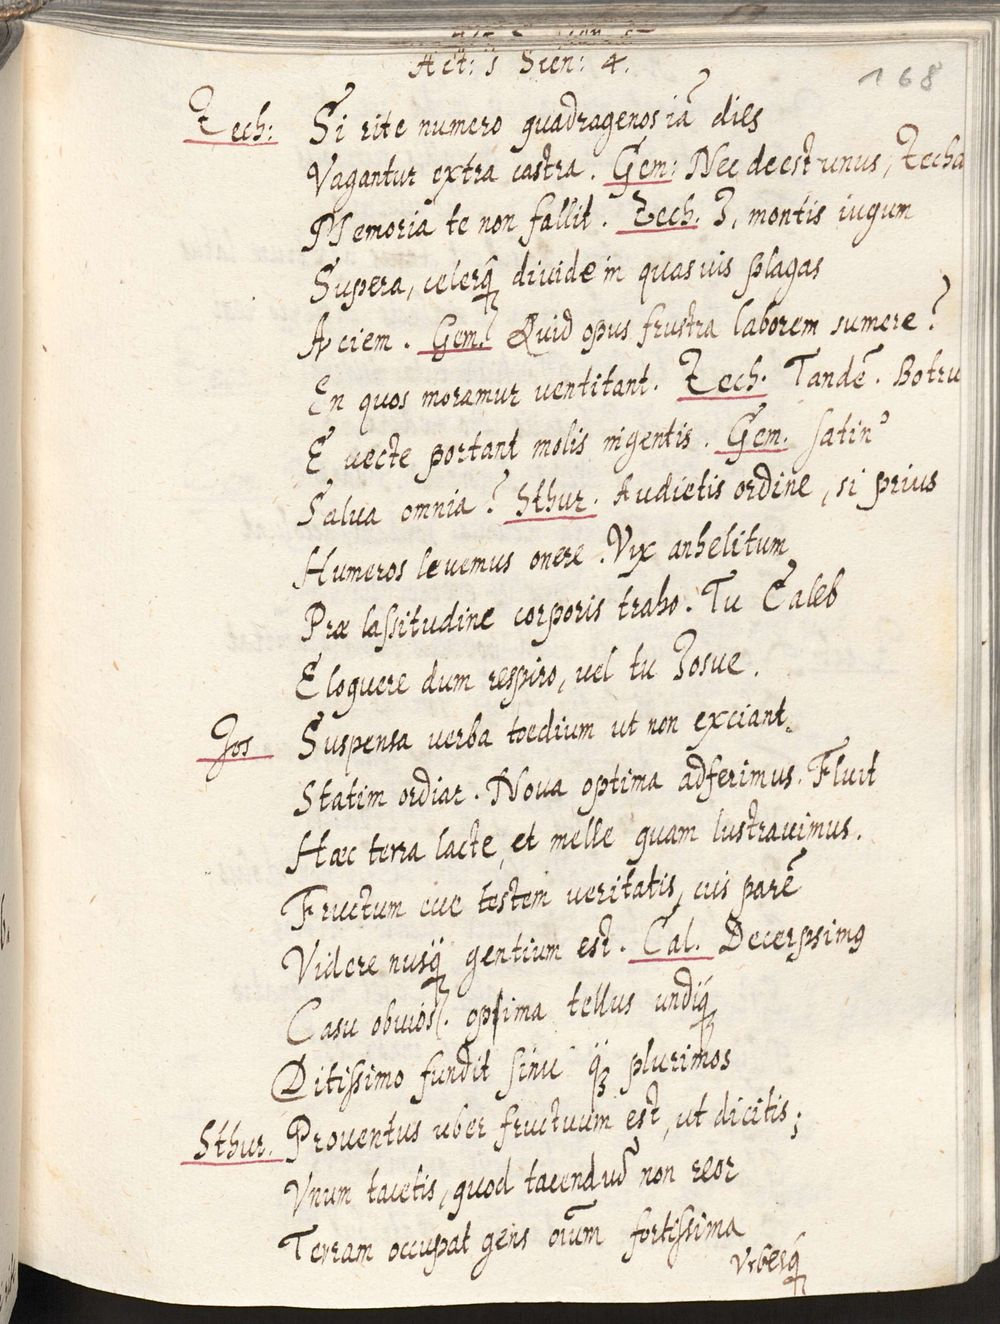 Act: 5 Scen: 4.
168
Zech: Si rite numero quadragenos iā dies
Vagantur extra castra. Gem: Nec deest unus, Zecha
Memoria te non fallit. Zech. I, montis iugum
Supera, celerq̄ divide in quasuis plagas
Aciem. Gem. Quid opus frustra laborem sumere?
En quos moramur ventitant. Zech. Tandē. Botru
E vecte portant molis ingentis. Gem. satin'
Salua omnia? Sthur. Audietis ordine, si prius
Humeros levemus onere. Vix anhelitum
Præ lassitudine corporis traho. Tu Caleb
Eloquere dum respiro, vel tu Iosue.
Jos Suspensa verba tœdium ut non exciant.
Statim ordiar. Nova optima adferimus. Fluit
Hæc terra lacte, et melle quam lustravimus.
Fructum cue testem veritatis, cuis parē
Videre nusq̄ gentium est. Cal. Decerpsimꝰ
Casu obuiōs. opima tellus undiq̄
Ditissimo fundit sinu q̄ꝫ plurimos
Sthur. Proventus uber fructuum est, ut dicitis;
Vnum tacetis, quod tacendū non reor
Terram occupat gens oīum fortissima
Vrbesq̄